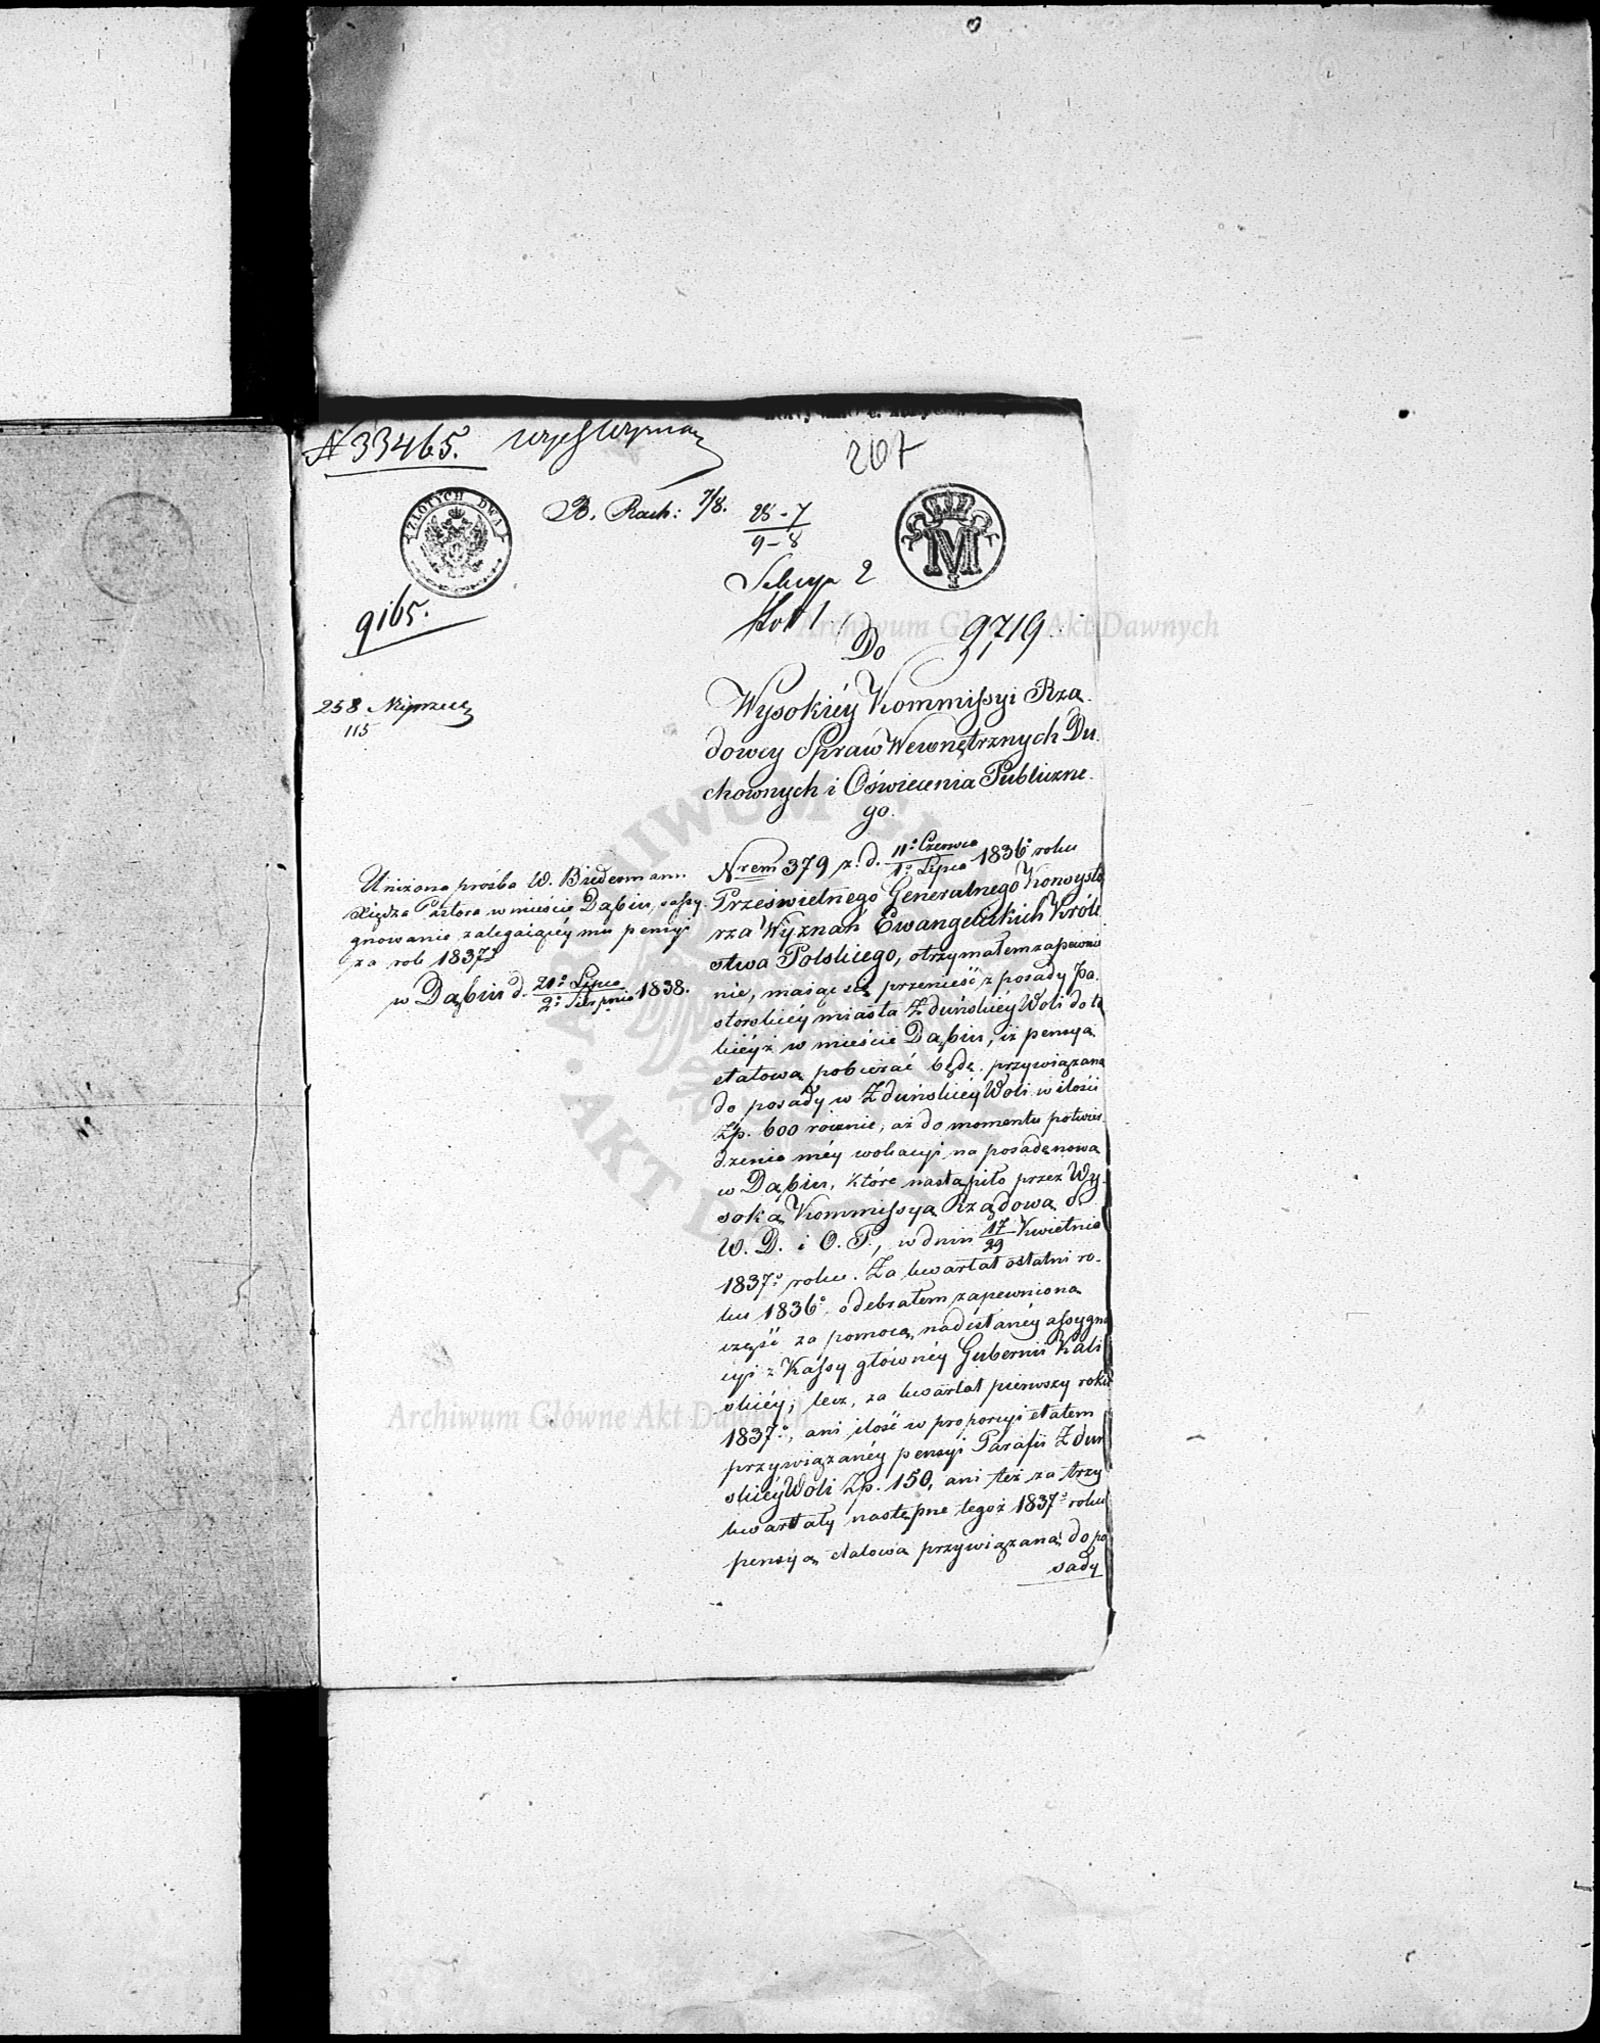 N 33465.
207
ZŁOTYCH DWA
B. Rach: 7/8.
25-7
9-8
Sekcya 2
M
9165.
9,719
Do
258
115
Wysokiéy Kommissyi Rzą-
dowey Spraw Wewnętrznych Du-
chownych i Oświecenia Publiczne-
go.
Uniżona prośba W. Biedermann
Xiędza Pastora w mieście Dąbiu, o assy-
gnowanie zalegaiącéy mu pensyi
za rok 1837.
w Dąbiu d. 21º Lipca / 2º Sierpnia 1838.
Nrem 379 z. d. 11º Czerwca / 1º Lipca 1836º roku
Prześwietnego Generalnego Konsysto
rza Wyznań Ewangelickich Króle
stwa Polskiego, otrzymałem zapewnie
nie, maiąc się przenieść z posady Pa-
storskiey miasta Zduńskiéy Woli do ta
kiéyż w mieście Dąbiu, iż pensyą
etatową pobierać będę, przywiązaną
do posady w Zduńskiéy Woli w ilości
Złp. 600 rocznie, aż do momentu potwier-
dzenia méy wokacyi na posadę nową
w Dąbiu, które nastąpiło przez Wy-
soką Kommissyą Rządową S.
W. D. i O. P., w dniu 17/29 Kwietnia
1837º roku. Za kwartał ostatni ro-
ku 1836º. odebrałem zapewnioną
część za pomocą nadesłanéy assygna
cyi z Kassy główney Gubernii Kali
skiéy; lecz, za kwartał pierwszy roku
1837º, ani ilość w proporcyi etatem
przywiązanéy pensyi Parafii Zduń
skiéy Woli Złp. 150, ani też za trzy
kwartały następne tegoż 1837º roku
pensyą etatową przywiązaną do po
sady
Archiwum Główne Akt Dawnych
Archiwum Główne Akt Dawnych